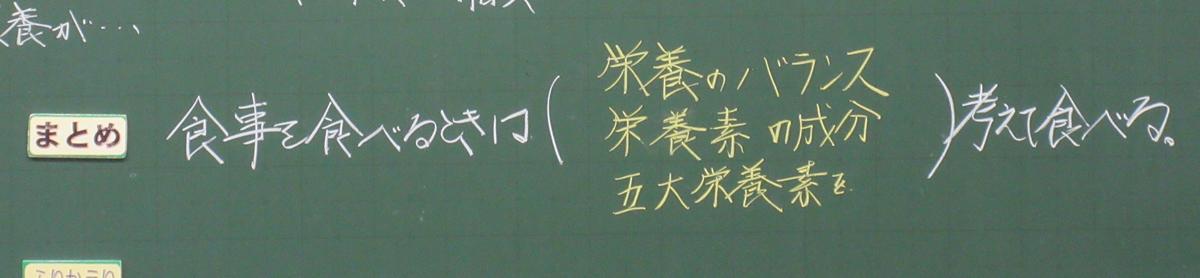 養が…
まとめ
食事を食べるときは(
栄養のバランス
栄養素の成分
五大栄養素を
)考えて食べる。
ふりかえり